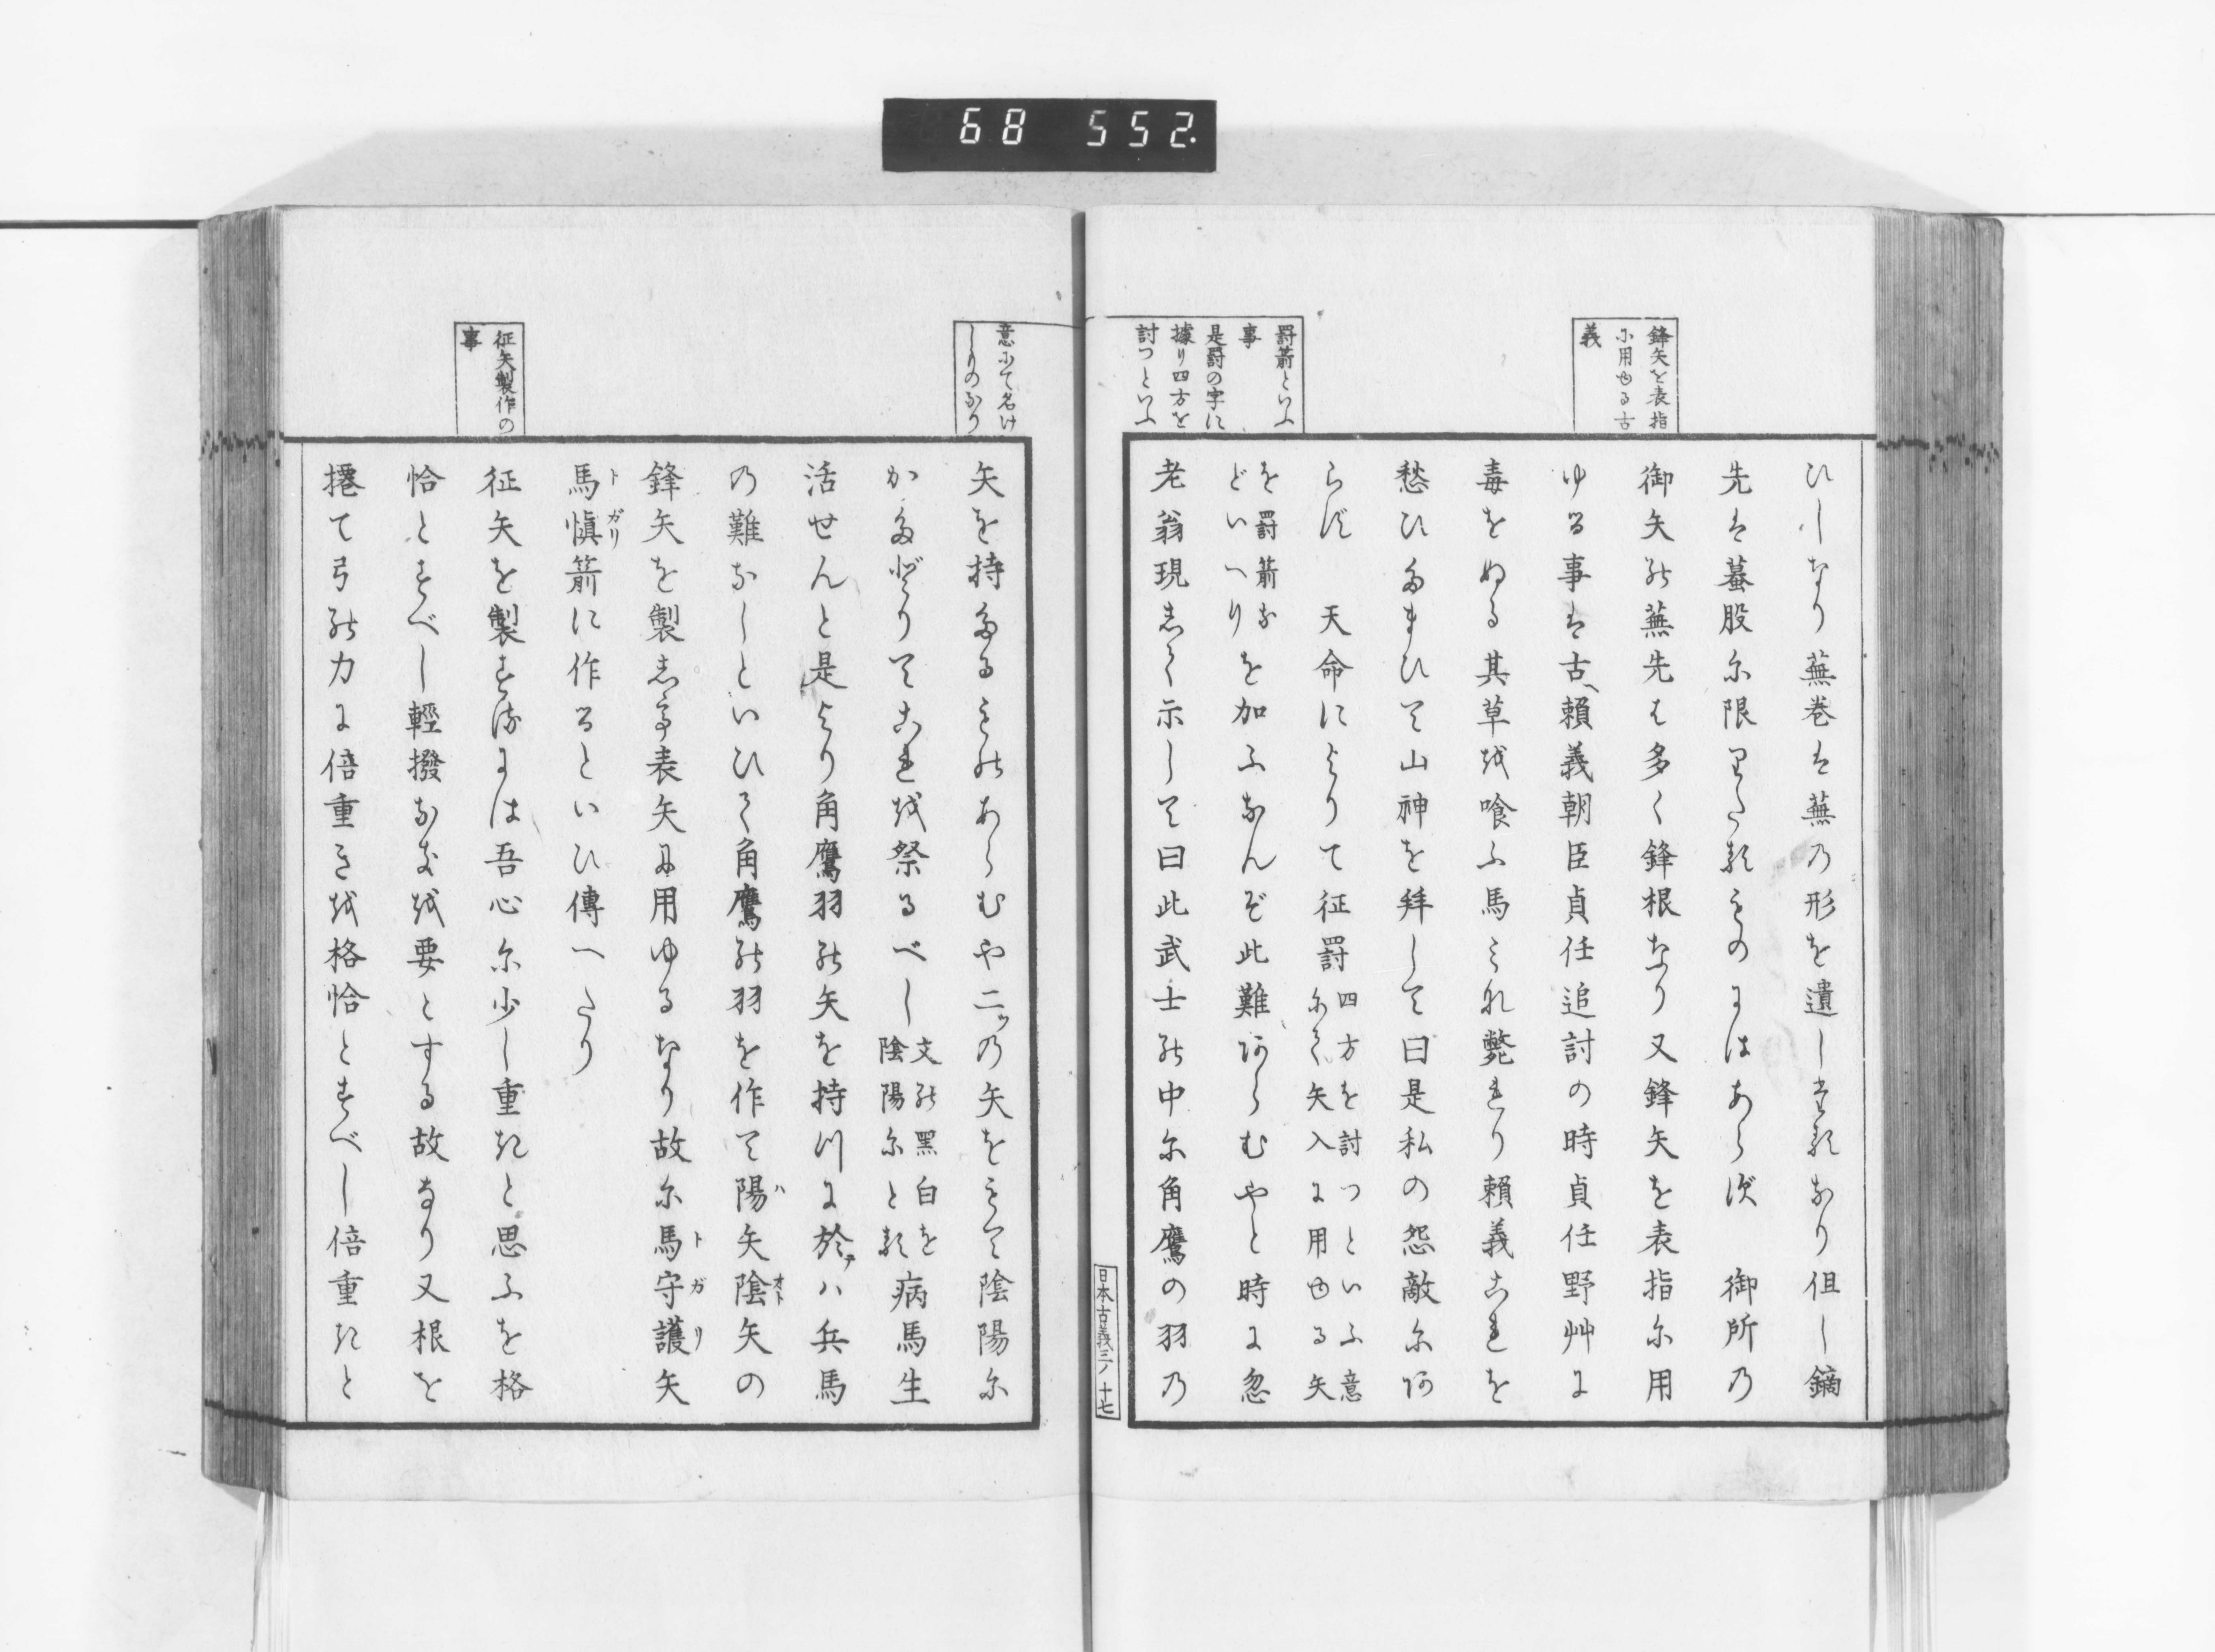 68 552.
鋒矢を表指
尓用ゆる古
義
ひしなり蕪巻は蕪乃形を遺しゝ物なり但し鏑
先は蟇股尓限りたるものにはあらず 御所乃
御矢能蕪先も多く鋒根なり又鋒矢を表指尓用
ゆる事は古へ頼義朝臣貞任追討の時貞任野艸に
毒をぬる其草越喰ふ馬みな斃れり頼義これを
愁ひたまひて山神を拝して曰是私の怨敵尓阿
らず 天命によりて征罸尓て
四方を討つといふ意
矢入に用ゆる矢
を罸箭な
どいへり
を加ふなんぞ此難阿らむやと時に忽
老翁現志て示して曰此武士能中尓角鷹の羽乃
罸箭といふ
事
是罸の字に
據り四方を
討つといふ
日本古義三ノ 十七
意にて名け
しものなり
矢を持たるもの能あらむや二ツの矢をもて陰陽尓
かたどりてこれ越祭るべし
文能黒白を
陰陽尓とる
病馬生
活せんと是より角鷹羽能矢を持川に於テハ兵馬
の難なしといひて角鷹能羽を作て陽矢陰矢の
ハ オト
鋒矢を製志て表矢に用ゆるなり故尓馬守護矢
トガリ
馬愼箭に作るといひ傳へたり
トガリ
征矢製作の
事
征矢を製するには吾心尓少し重きと思ふを格
恰とすべし輕撥なる越要とする故なり又根を
捲て弓能力に倍重き越格恰とすべし倍重きと